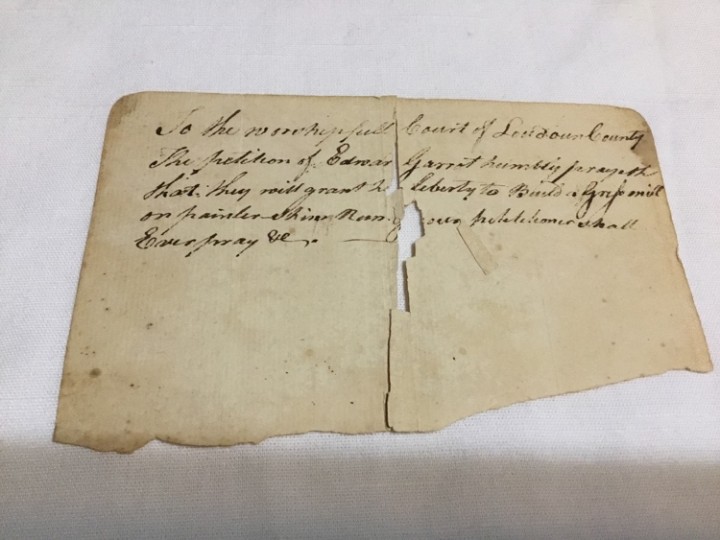 To the worshipfull Court of Loudoun County
The petition of Edwar Garret humbly prayeth
that they will grant h liberty to Build a Grist mill
on painter Skinn Run your petitioner shall
Ever pray &c.